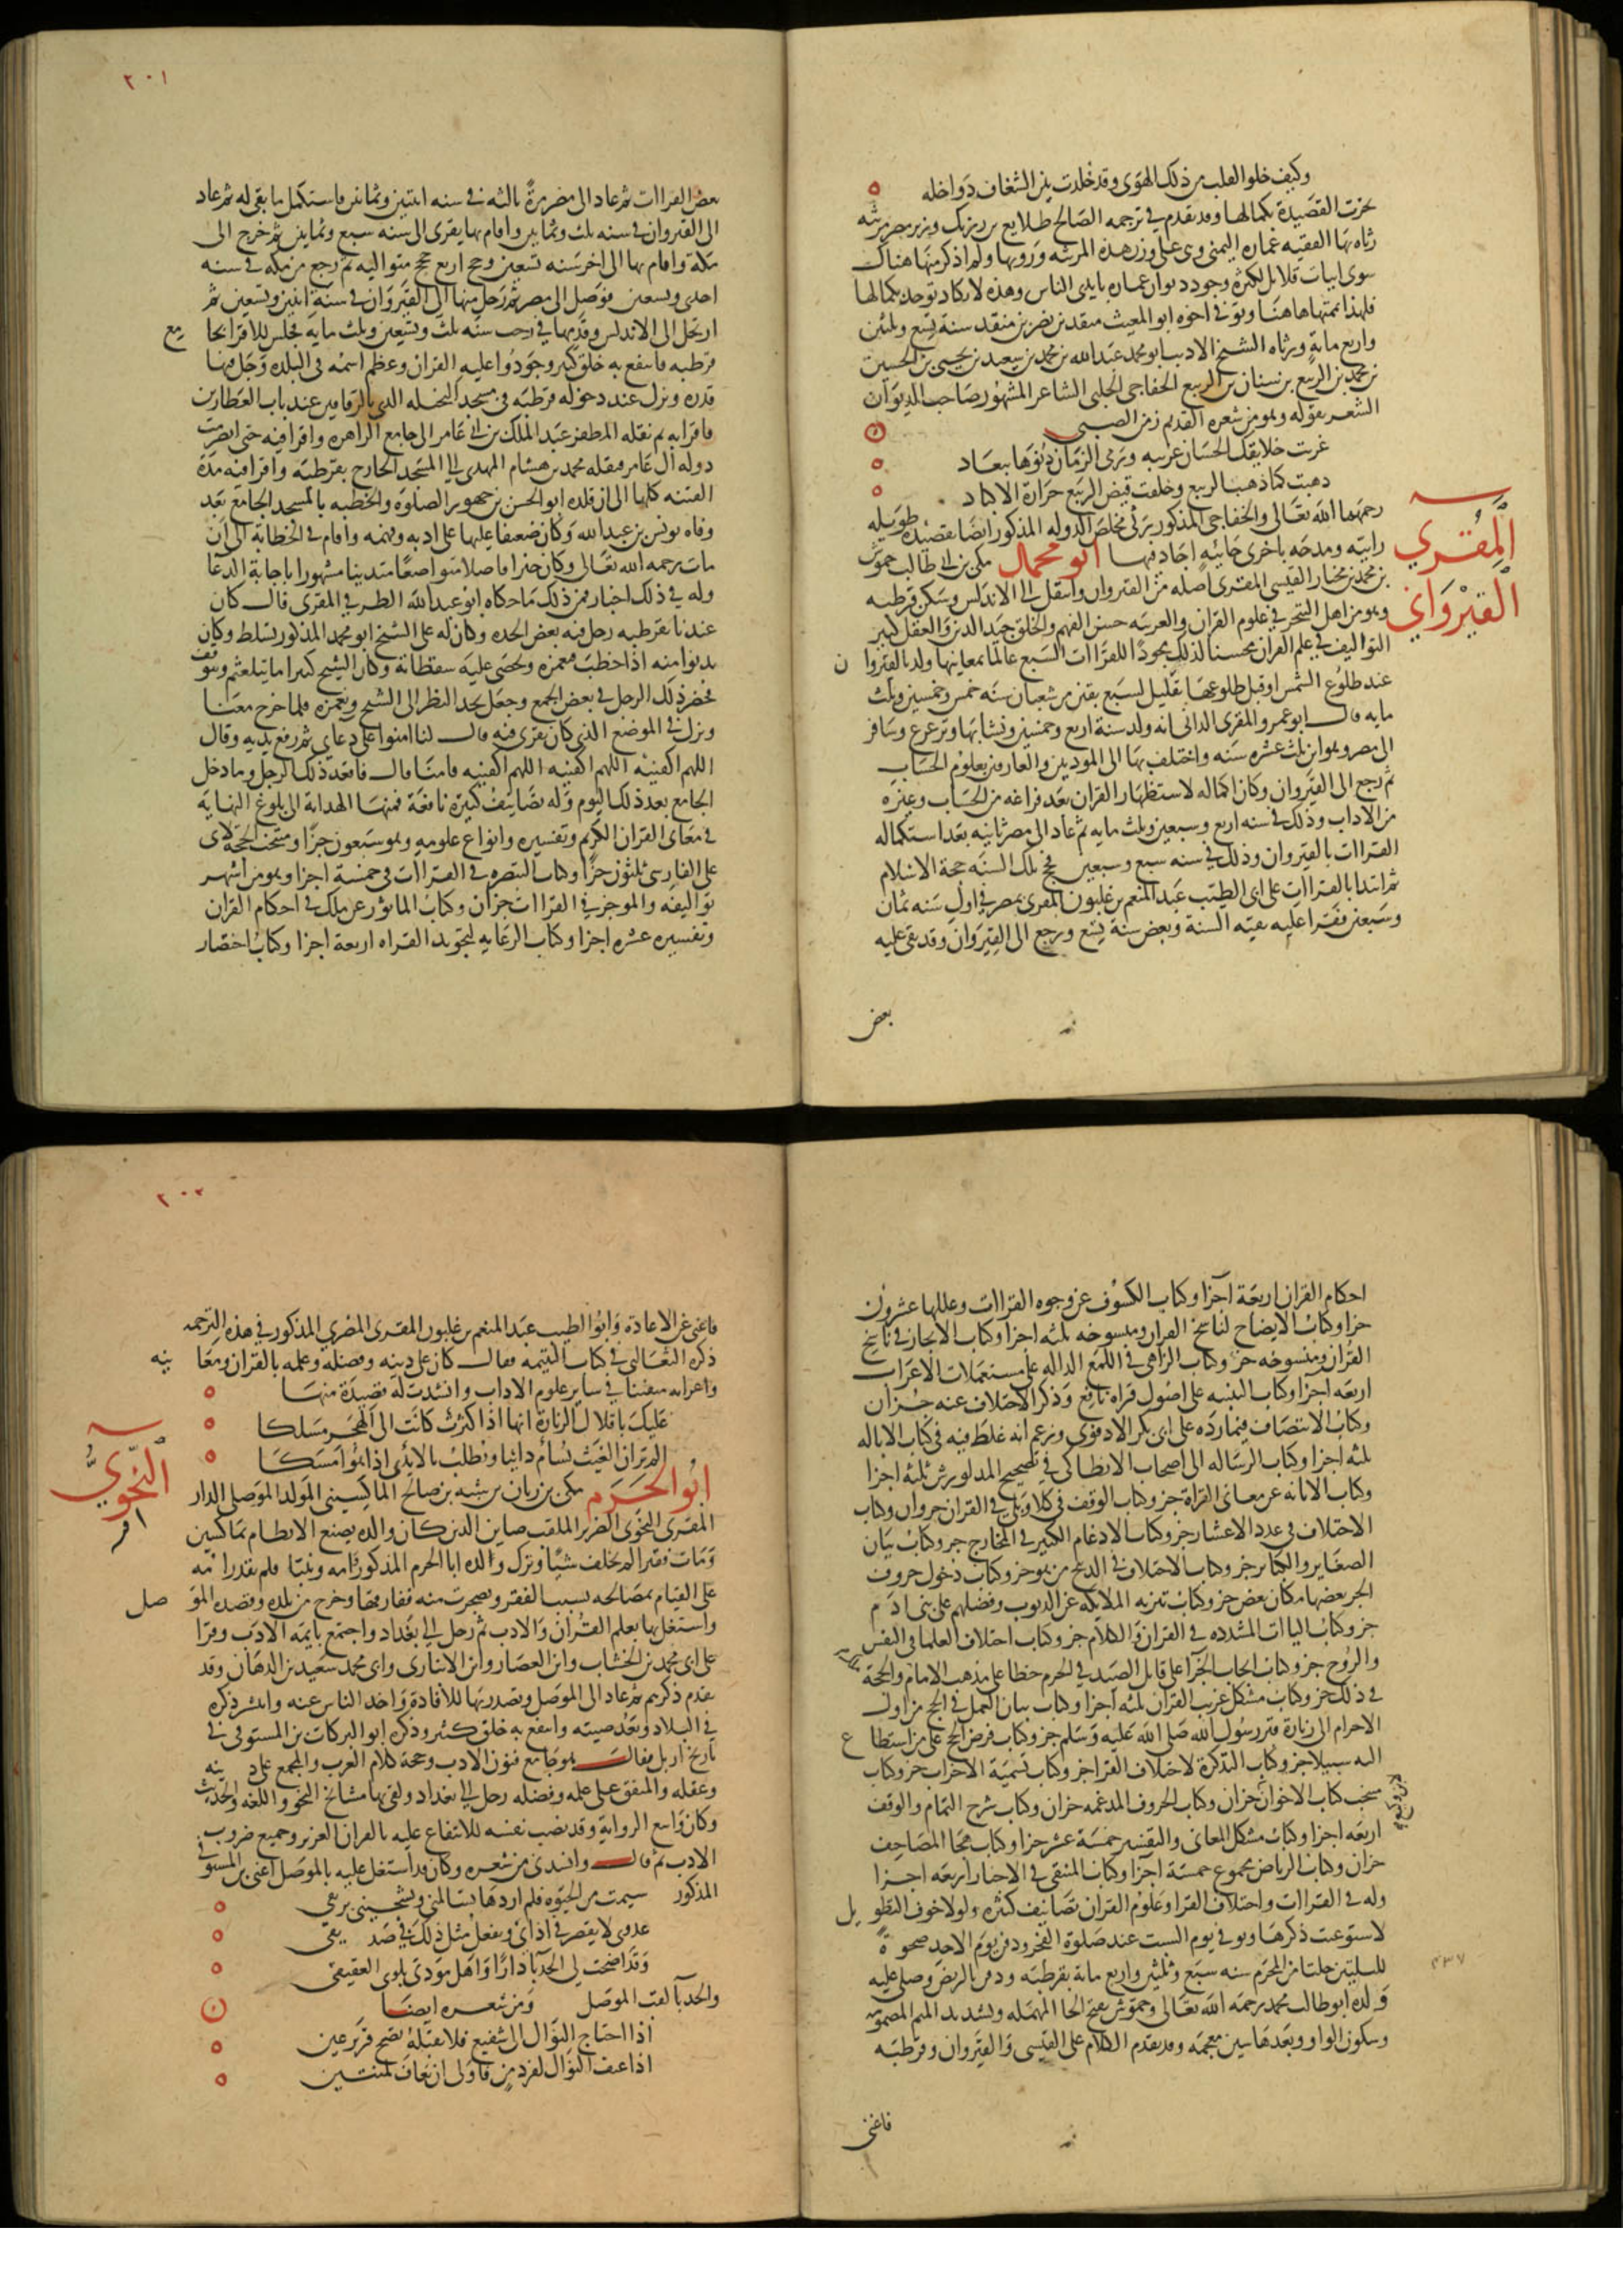 وكيف خلو القلب من ذلك الهوى وقد خلدت بين الشغاف دواخله
نجزت القصيدة بكمالها وقد تقدم في ترجمه الصالح طلايع بن رزيك
رثاه بها الفقيه عماره اليمنى وهى على وزن هذه المرثيه ورويها ولم اذكر منها هناك
سوى ابيات قلايل لكثرة وجود ديوان عماره بايدى الناس وهذه لا يكاد توجد بكمالها
فلهذا اثبتها هاهنا وتوفى اخوه ابو المغيث منقد بن نصر بن منقد سنة تسع وثلثين
واربع ماية ورثاه الشيخ الاديب ابو محمد عبد الله بن محمد بن سعيد بن يحيى بن الحسين
بن محمد بن الربيع بن سنان بن الربيع الخفاجى الحلبى الشاعر المشهور صاحب الديوان
الشعر بقوله وهو من شعره القديم زمن الصبى
غربت خلايقك الحسان غريبه ورمى الزمان دنوها ببعاد
دهبت كما ذهب الربيع وخلفت قيض الربيع حرارة الاكباد
رحمهما الله تعالى والخفاجى المذكور يرثى مخلص الدوله المذكور ايضا بقصيده طويله
رايه ومدحه باخرى حائيه اجاد فيها ابو محمد مكى بن ابى طالب حموش
المقري القيرواني
بن محمد بن مختار القيسى المقرى اصله من القيروان وانتقل الى الاندلس وسكن قرطبه
وهو من اهل التبحر في علوم القران والعربيه حسن الفهم والخلق جيد الدين والعقل كثير
التواليف في علم القران محسنا لذلك مجودا للقراات السبع عالما بمعانيها ولد بالقيروان
عند طلوع الشمس او قبل طلوعها بقليل لسبع بقين من شعبان سنه خمس وخمسين وثلث
مايه قال ابو عمرو المقرى الدانى انه ولد سنة اربع وخمسين ونشا بها وترعرع وسافر
الى مصر وهو ابن ثلث عشره سنه واختلف بها الى المودبين والعارفين بعلوم الحساب
ثم رجع الى القيروان وكان اكماله لاستظهار القران بعد فراغه من الحساب وغيره
من الاداب وذلك في سنه اربع وسبعين وثلث مايه ثم عاد الى مصر ثانيه بعد استكماله
القراات بالقيروان وذلك في سنه سبع وسبعين فحج تلك السنه حجة الاسلام
ثم ابتدا بالقراات على ابى الطيب عبد المنعم بن غلبون المقرى بمصر في اول سنه ثمان
وسبعين فقرا عليه بقيه السنة وبعض سنة تسع ورجع الى القيروان وقد بقى عليه
بعض
٢٠١
بعض القراات ثم عاد الى مصر مرة ثالثه في سنه اثنتين وثمانين فاستكمل ما بقى له ثم عاد
الى القيروان في سنه ثلث وثمانين واقام بها يقرى الى سنه سبع وثمانين ثم خرج الى
مكة واقام بها الى اخر سنه تسعين وحج اربع حجج متواليه ثم رجع من مكه في سنه
احدى وتسعين فوصل الى مصر ثم رحل منها الى القيروان في سنة اثنين وتسعين ثم
ارتحل الى الاندلس وقدمها في رجب سنه ثلث وتسعين وثلث مايه فجلس للاقرا بجامع
قرطبه فانتفع به خلق كثير وجودوا عليه القران وعظم اسمه في البلده وجل فيها
قدره ونزل عند دخوله قرطبه في مسجد النخيله الذى بالزقاقين عند باب العطارين
فاقرا به ثم نقله المظفر عبد الملك بن ابى عامر الى جامع الزاهرة واقرا فيه حتى انصرمت
دوله آل عامر فنقله محمد بن هشام المهدى الى المسجد الخارج بقرطبه واقرا فيه مدة
الفتنه كلها الى ان قلده ابو الحسن بن جهور الصلوة والخطبه بالمسجد الجامع بعد
وفاه يونس بن عبد الله وكان ضعيفا عليها على ادبه وفهمه واقام في الخطابة الى ان
مات رحمه الله تعالى وكان خيرا فاضلا متواضعا متدينا مشهورا باجابة الدعا
وله في ذلك اخبار فمن ذلك ما حكاه ابو عبد الله الطرفي المقرى قال كان
عندنا بقرطبه رجل فيه بعض الحده وكان له على الشيخ ابو محمد المذكور تسلط وكان
يدنوا منه اذا خطب فيغمزه ويحصى عليه سقطاته وكان الشيخ كثيرا ما يتلعثم ويتوقف
فحضر ذلك الرجل في بعض الجمع وجعل يحد النظر الى الشيخ ويغمزه فلما خرج معنا
ونزل في الموضع الذى كان يقرى فيه قال لنا امنوا على دعاي ثم رفع يديه وقال
اللهم اكفنيه اللهم اكفنيه اللهم اكفنيه فامنا قال فاقعد ذلك الرجل وما دخل
الجامع بعد ذلك اليوم وله تصانيف كثيرة نافعة فمنها الهداية الى بلوغ النهاية
في معانى القران الكريم وتفسيره وانواع علومه وهو سبعون جزا ومنتخب الحجة لابى
على الفارسى ثلثون جزا وكتاب التبصره في القراات في خمسة اجزا وهو من اشهر
تواليفه والموجز في القراات جزآن وكتاب الماثور عن مالك في احكام القران
وتفسيره عشره اجزا وكتاب الرعايه لتجويد القراه اربعة اجزا وكتاب اختصار
احكام القران اربعة اجزا وكتاب الكشوف عن وجوه القراات وعللها عشرون
جزا وكتاب الايضاح لناسخ القران ومنسوخه ثلثه اجزا وكتاب الايجاز في ناسخ
القران ومنسوخه جز وكتاب الزاهى في اللمع الداله على مستعملات الاعراب
اربعه اجزا وكتاب التنبيه على اصول قراه نافع وذكر الاختلاف عنه جزان
وكتاب الانتصاف فيما رده على ابى بكر الادفوى وزعم انه غلط فيه في كتاب الاماله
ثلثه اجزا وكتاب الرساله الى اصحاب الانطاكى في تصحيح المد لورش ثلثه اجزا
وكتاب الابانه عن معانى القراة جز وكتاب الوقف في كلا وبلى في القران جزوان وكتاب
الاختلاف في عدد الاعشار جز وكتاب الادغام الكبير في المخارج جز وكتاب بيان
الصغاير والكباير جز وكتاب الاختلاف في الذبيح من هو جز وكتاب دخول حروف
الجر بعضها مكان بعض جز وكتاب تنزيه الملايكه عن الذنوب وفضلهم على بنى ادم
جز وكتاب الياات المشدده في القران والكلام جز وكتاب اختلاف العلما في النفس
والروح جز وكتاب ايجاب الجزا على قاتل الصيد في الحرم خطا على مذهب الامام والحجة
في ذلك جز وكتاب مشكل غريب القران ثلثه اجزا وكتاب بيان العمل في الحج من اول
الاحرام الى زيارة قبر رسول الله صلى الله عليه وسلم جز وكتاب فرض الحج على من استطاع
اليه سبيلا جز وكتاب التذكرة لاختلاف القرا جز وكتاب تسمية الاحزاب جز وكتاب
منتخب كتاب الاخوان جزان وكتاب الحروف المدغمه جزان وكتاب شرح التمام والوقف
اربعه اجزا وكتاب مشكل المعانى والتفسير خمسة عشر جزا وكتاب هجا المصاحف
جزان وكتاب الرياض مجموع خمسة اجزا وكتاب المنتقى في الاخبار اربعه اجزا
وله في القراات واختلاف القرا وعلوم القران تصانيف كثيره ولولا خوف التطويل
لاستوعبت ذكرها وتوفى يوم السبت عند صلوة الفجر ودفن يوم الاحد ضحوة
لليلتين خلتا من المحرم سنه سبع وثلثين واربع ماية بقرطبه ودفن بالربض وصلى عليه
٤٣٧
ولده ابو طالب محمد رحمه الله تعالى وحموش بفتح الحا المهمله وتشديد الميم المضمومه
وسكون الواو وبعدها سين معجمه وقد تقدم الكلام على القيسى والقيروان وقرطبه
فاغنى
٢٠٢
فاغنى عن الاعادة وابو الطيب عبد المنعم بن غلبون المقرى المصري المذكور في هذه الترجمه
ذكره الثعالبى في كتاب اليتيمه فقال كان على دينه وفضله وعلمه بالقران ومعانيه
واعرابه متفننا في ساير علوم الاداب وانشدت له قصيدة منها
عليك باقلال الزيارة انها اذا كثرت كانت الى الهجر مسلكا
الم تر ان الغيث يسأم دايبا ويطلب بالايدى اذا هو امسكا
النحوي
ابو الحرم مكى بن ريان بن شبه بن صالح الماكسينى المولد الموصلى الدار
المقرى النحوى الضرير الملقب صاين الدين كان والده يصنع الانطاع بماكسين
ومات فقيرا لم يخلف شيا وترك والده ابا الحرم المذكور وامه وبنتا فلم يقدر امه
على القيام بمصالحه بسبب الفقر وضجرت منه ففارقها وخرج من بلده وقصد الموصل
واشتغل بها بعلم القران والادب ثم رحل الى بغداد واجتمع بايمه الادب وقرا
على ابى محمد بن الخشاب وابن العصار وابن الانبارى وابى محمد سعيد بن الدهان وقد
تقدم ذكرهم ثم عاد الى الموصل وتصدر بها للافادة واخذ الناس عنه وانتشر ذكره
في البلاد وبعد صيته وانتفع به خلق كثير وذكره ابو البركات بن المستوفى في
تاريخ اربل فقال هو جامع فنون الادب وحجة كلام العرب والمجمع على دينه
وعقله والمتفق على علمه وفضله رحل الى بغداد ولقى بها مشايخ النحو واللغه والحديث
وكان واسع الرواية وقد نصب نفسه للانتفاع عليه بالقران العزيز وجميع ضروب
الادب ثم قال وانشدنى من شعره وكان قد اشتغل عليه بالموصل اعنى ابن المستوفى
المذكور سيمت من الحيوه فلم اردها تسالمنى وتشجينى بريقى
عدوى لا يقصر في اذاى ويفعل مثل ذلك في صديقى
وقد اضحت لى الحدبآ دارا واهل مودتى بلوى العقيق
والحدبآ لقب الموصل ومن شعره ايضا
اذا احتاج النوال الى شفيع فلا تقبله تضح قرير عين
اذا عيف النوال لفرد من فاولى ان يعاف لمنتين